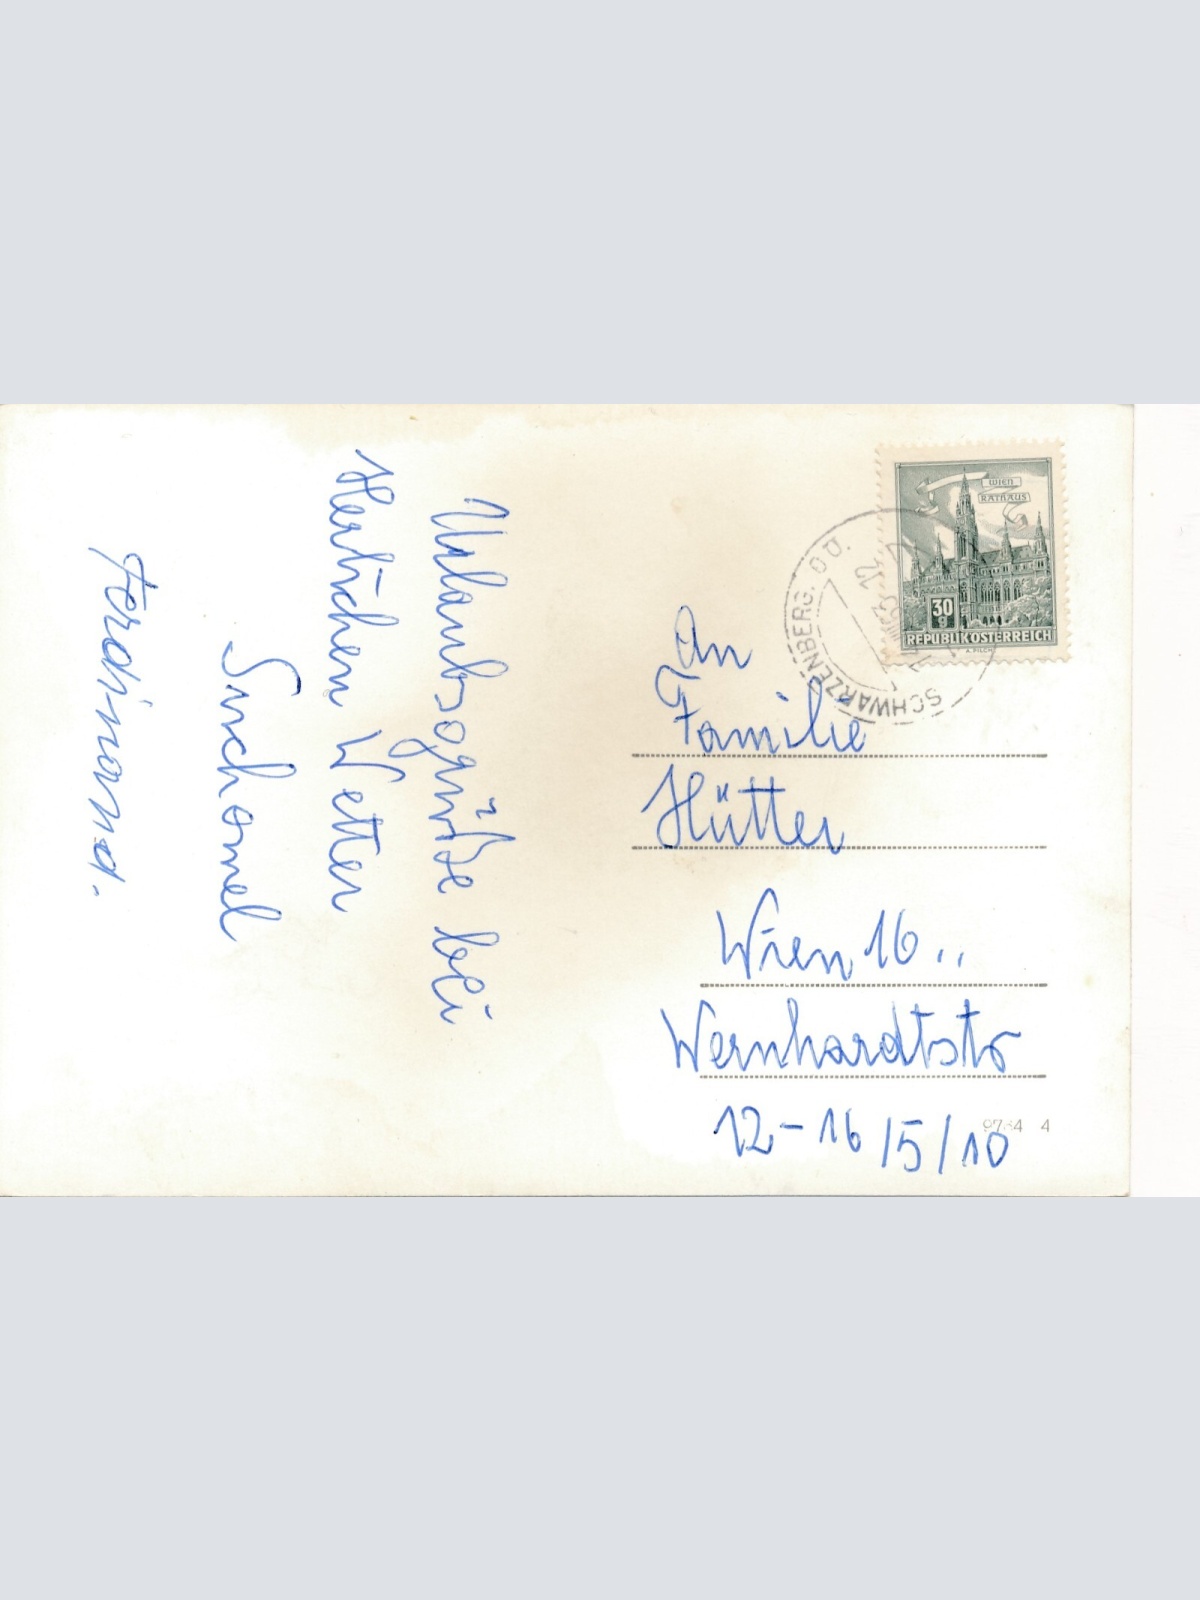 Urlaubsgrüße bei
Herlichen Wetter
Suchomel
Ferdinand.
WIEN
RATHAUS
30
g
REPUBLIK ÖSTERREICH
A. PILCH
SCHWARZENBERG, OÖ.
An
Familie
Hütter
Wien 16..
Wernhardtstr
12-16/5/10